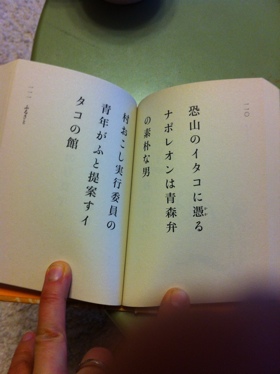 一一〇
恐山のイタコに憑る
ナポレオンは青森弁
の素朴な男
村おこし実行委員の
青年がふと提案すイ
タコの館